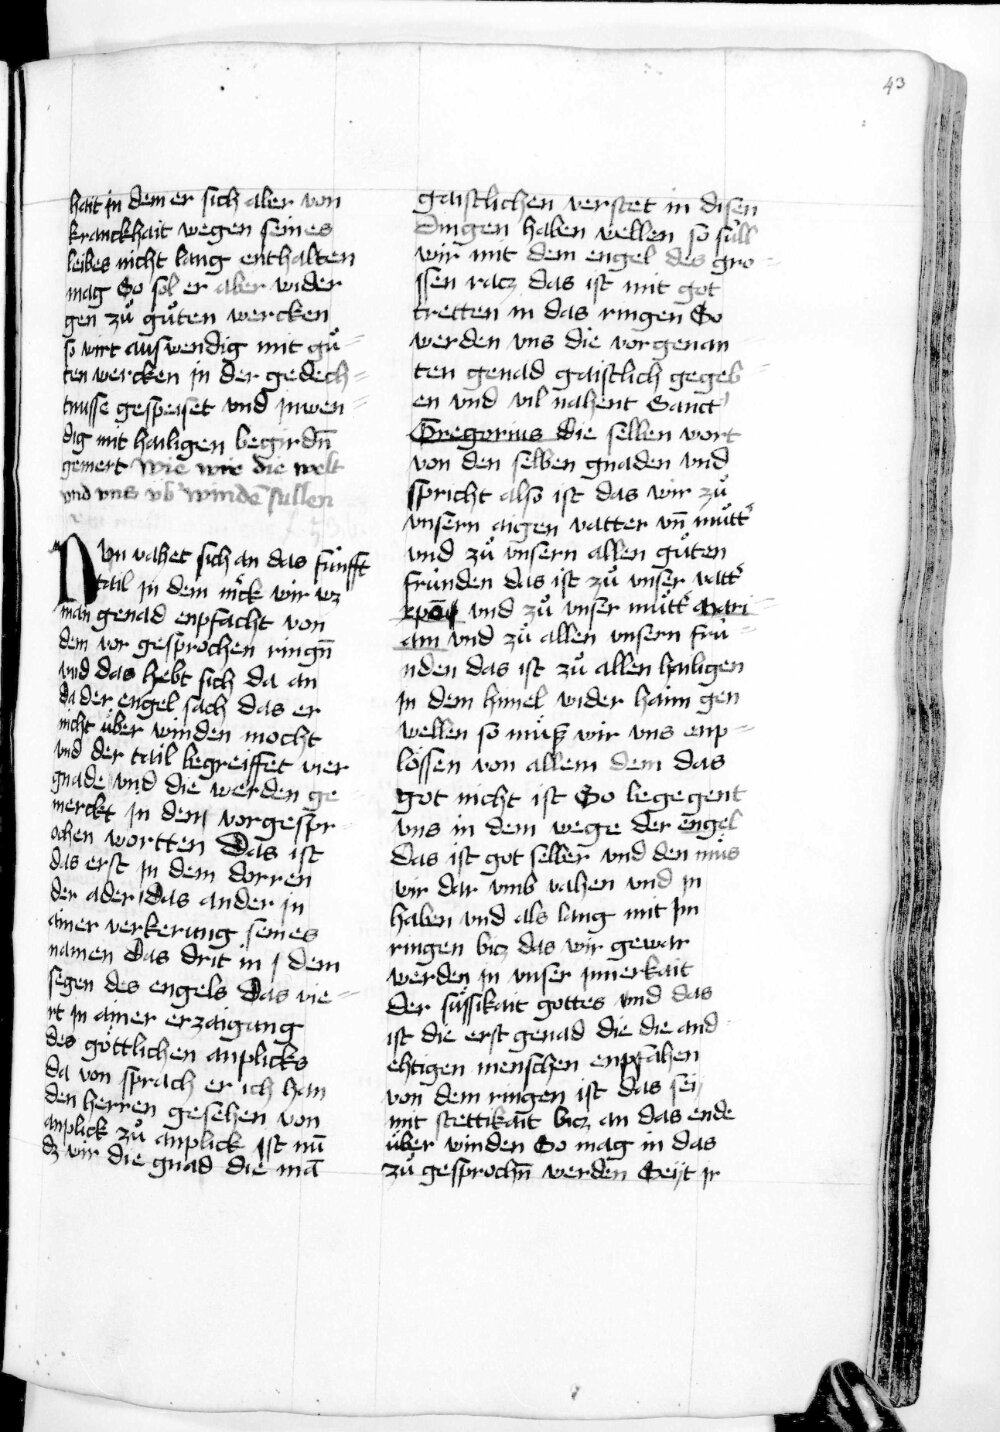 43
hait in dem er sich aber von
kranckhait wegen seines
leibes nicht lang enthalten
mag So sol er aber wider
gen zuͦ guͦten wercken
so wirt auswendig mit guͦ=
ten wercken in der gedech=
tnusse gespeiset vnd inwen=
dig mit hailigen begirdn̄
gemert Wie wir die welt
vnd vns vb' winden̄ sullen
Nvn vahet sich an das fünfft
tail in dem merck wir wz
man genad enpfacht von
dem vor gesprochen ringn̄
vnd das hebt sich da an
da der engel sach das er
nicht über winden mocht
vnd der tail begreiffet vier
gnade vnd die werden ge
merckt in dem vorgespr=
ochen wortten Das ist
das erst in dem dorren
der ader Das ander in
ainer verkerung seines
namen Das drit in dem
segen des engels Das vie=
rt in ainer erzaigung
des göttlichen anplicks
da von sprach er ich han
den herren gesehen von
anplick zuͦ anplick Ist nū
dz wir die gnad die mā
gaistlichen verstet in disen
dingen haben wellen so süll
wir mit dem engel des gro=
ssen racz das ist mit got
tretten in das ringen So
werden vns die vorgenan=
ten genad gaistlich gegeb=
en vnd vil nahent Sanct'
Gregorius die selben wort
von den selben gnaden vnd
spricht also ist das wir zuͦ
vnsern aigen vatter vn̄ muͦtt'
vnd zuͦ vnsern allen guͦten
fründen das ist zuͦ vnser vatt'
vnd zuͦ vnser muͦtt' mari=
am vnd zuͦ allen vnsern frü=
nden das ist zuͦ allen hailigen
in dem himel wider haim gen
wellen so müß wir vns enp=
lössen von allem dem das
got nicht ist So begegent
vns in dem wege der engel
das ist got selber vnd den müs
wir dar vmb vahen vnd in
haben vnd als lang mit im
ringen bicz das wir gewar
werden in vnser innerkait
der süssikait gottes vnd das
ist die erst genad die die and=
echtigen menschen enpfahen
von dem ringen ist das sei
mit stettikait bicz an das ende
über winden So mag in das
zuͦ gesprochn̄ werden Seijt ir